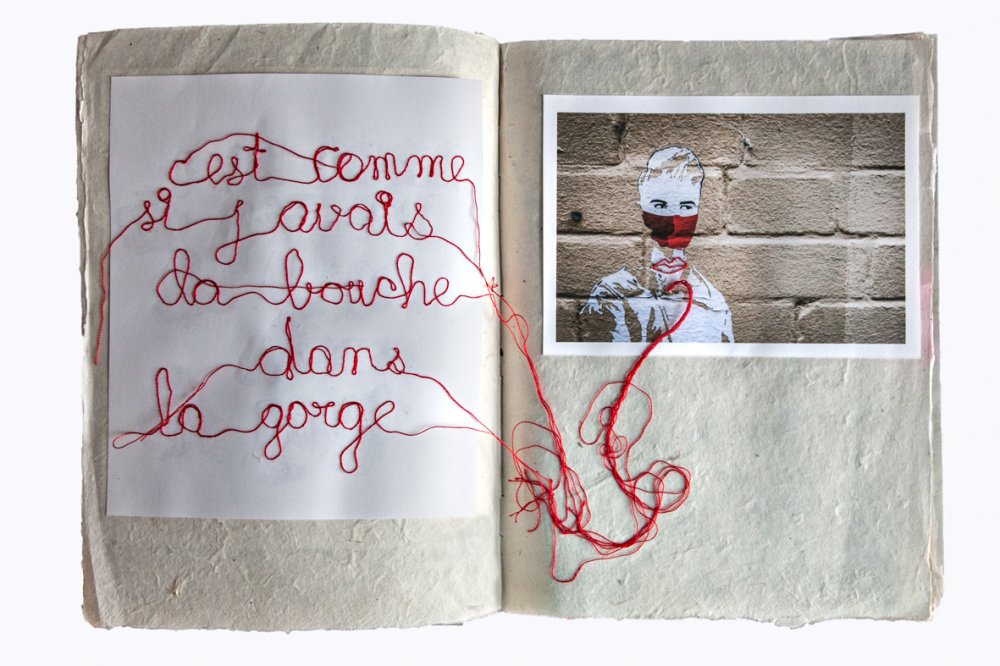 c'est comme
si j'avais
la bouche
dans
la gorge